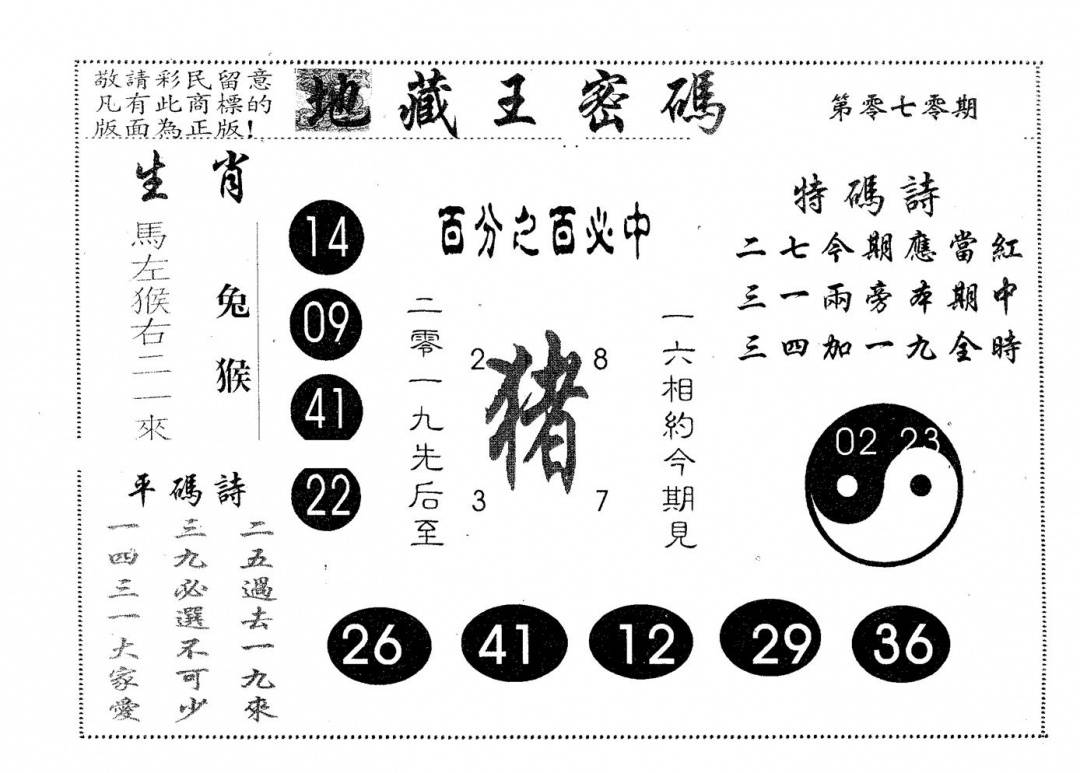 敬請彩民留意
凡有此商標的
版面為正版!
地藏王密碼
第零七零期
生肖
馬左猴右二一來
兔猴
14
09
41
22
百分之百必中
二零一九先后至
猪
2
8
3
7
一六相約今期見
特碼詩
二七今期應當紅
三一兩旁本期中
三四加一九全時
02 23
平碼詩
二五過去一九來
三九必選不可少
一四三一大家愛
26
41
12
29
36